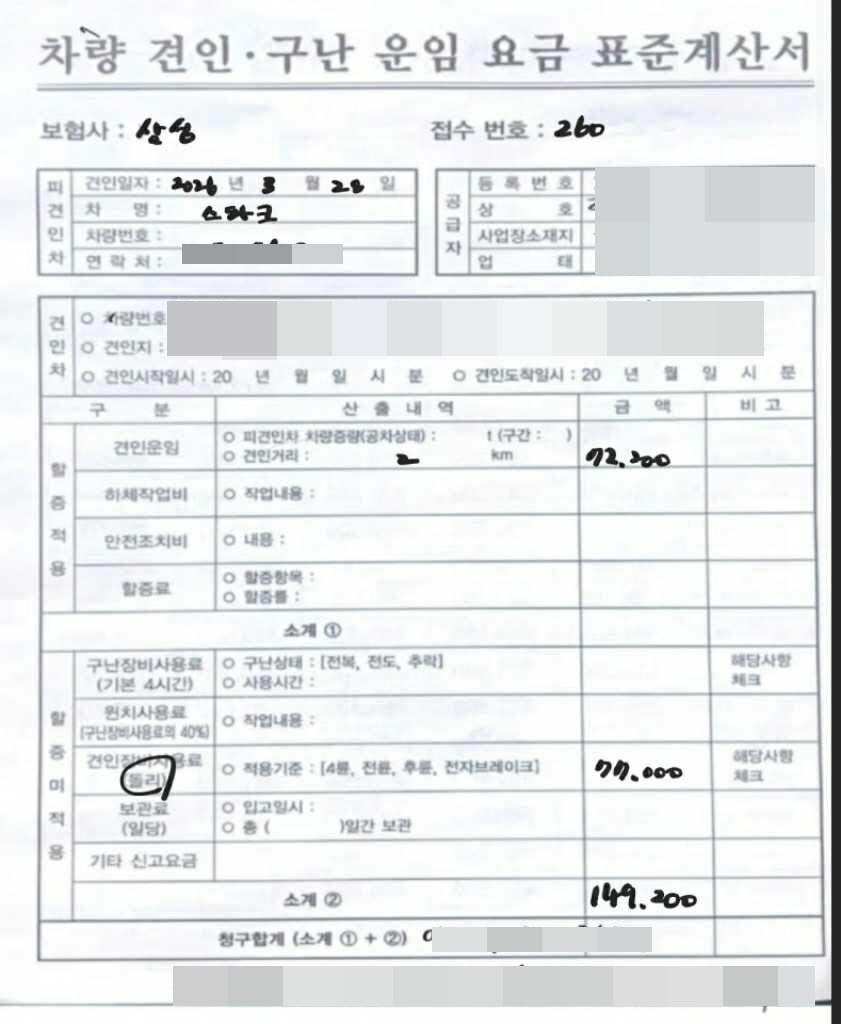 차량 견인·구난 운임 요금 표준계산서
보험사 : 삼성
접수 번호 : 260
피견인차
견인일자 : 2026 년 3 월 28 일
차 명 : 스파크
차량번호 :
연락처 :
공급자
등 록 번 호
상 호
사업장소재지
업 태
견인차
○ 차량번호
○ 견인지 :
○ 견인시작일시 : 20 년 월 일 시 분 ○ 견인도착일시 : 20 년 월 일 시 분
구 분 산 출 내 역 금 액 비 고
할증적용
견인운임
○ 피견인차 차량중량(공차상태) : t (구간 : )
○ 견인거리 : 2 km 72.200
하체작업비 ○ 작업내용 :
안전조치비 ○ 내용 :
할증료
○ 할증항목 :
○ 할증률 :
소계 ①
할증미적용
구난장비사용료
(기본 4시간)
○ 구난상태 : [전복, 전도, 추락]
○ 사용시간 :
해당사항
체크
윈치사용료
(구난장비사용료의 40%)
○ 작업내용 :
견인장비사용료
(돌리)
○ 적용기준 : [4륜, 전륜, 후륜, 전자브레이크] 77.000
해당사항
체크
보관료
(일당)
○ 입고일시 :
○ 총 ( )일간 보관
기타 신고요금
소계 ② 149.200
청구합계 (소계 ① + ②)